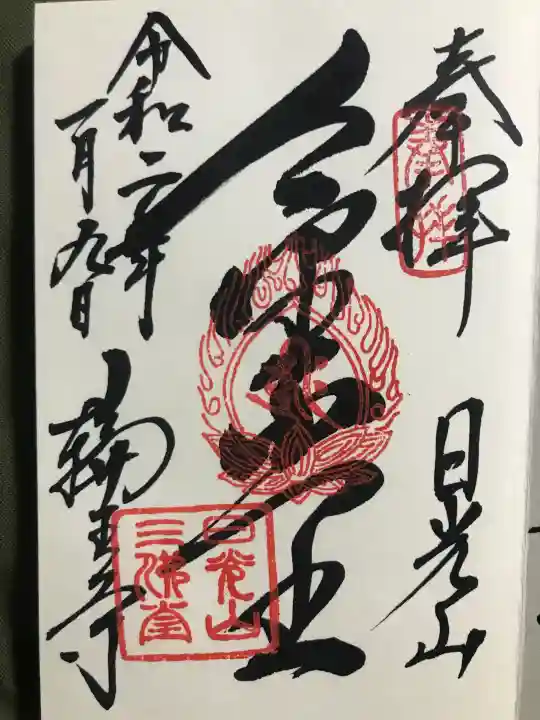 奉拝
日光山
金堂
令和二年
一月九日
輪王寺
日光山
三佛堂